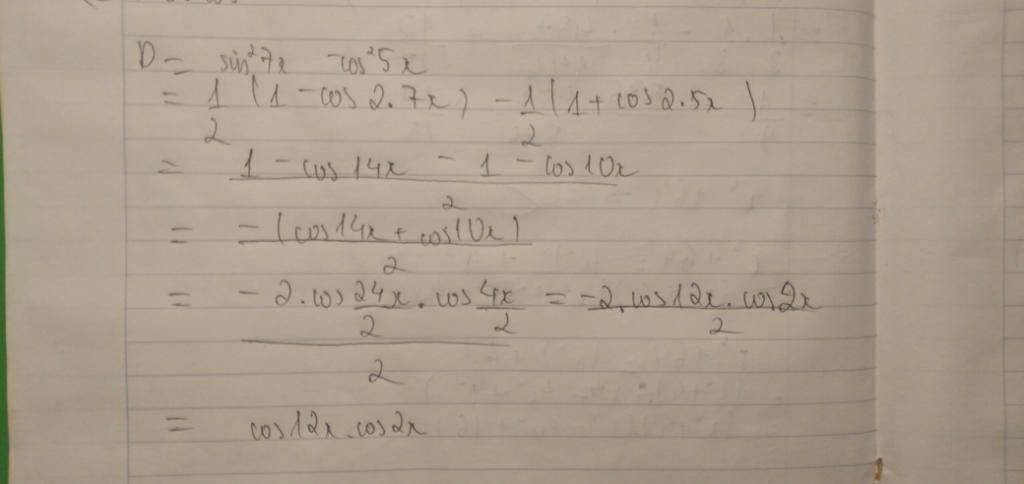 D = sin²7x cos²5x
= 1/2 (1 - cos 2.7x) - 1/2 (1 + cos 2.5x)
= (1 - cos14x - 1 - cos10x)/2
= -(cos14x + cos10x)/2
= (-2.cos 24x/2 . cos 4x/2)/2 = (-2.cos12x . cos2x)/2
= cos12x.cos2x